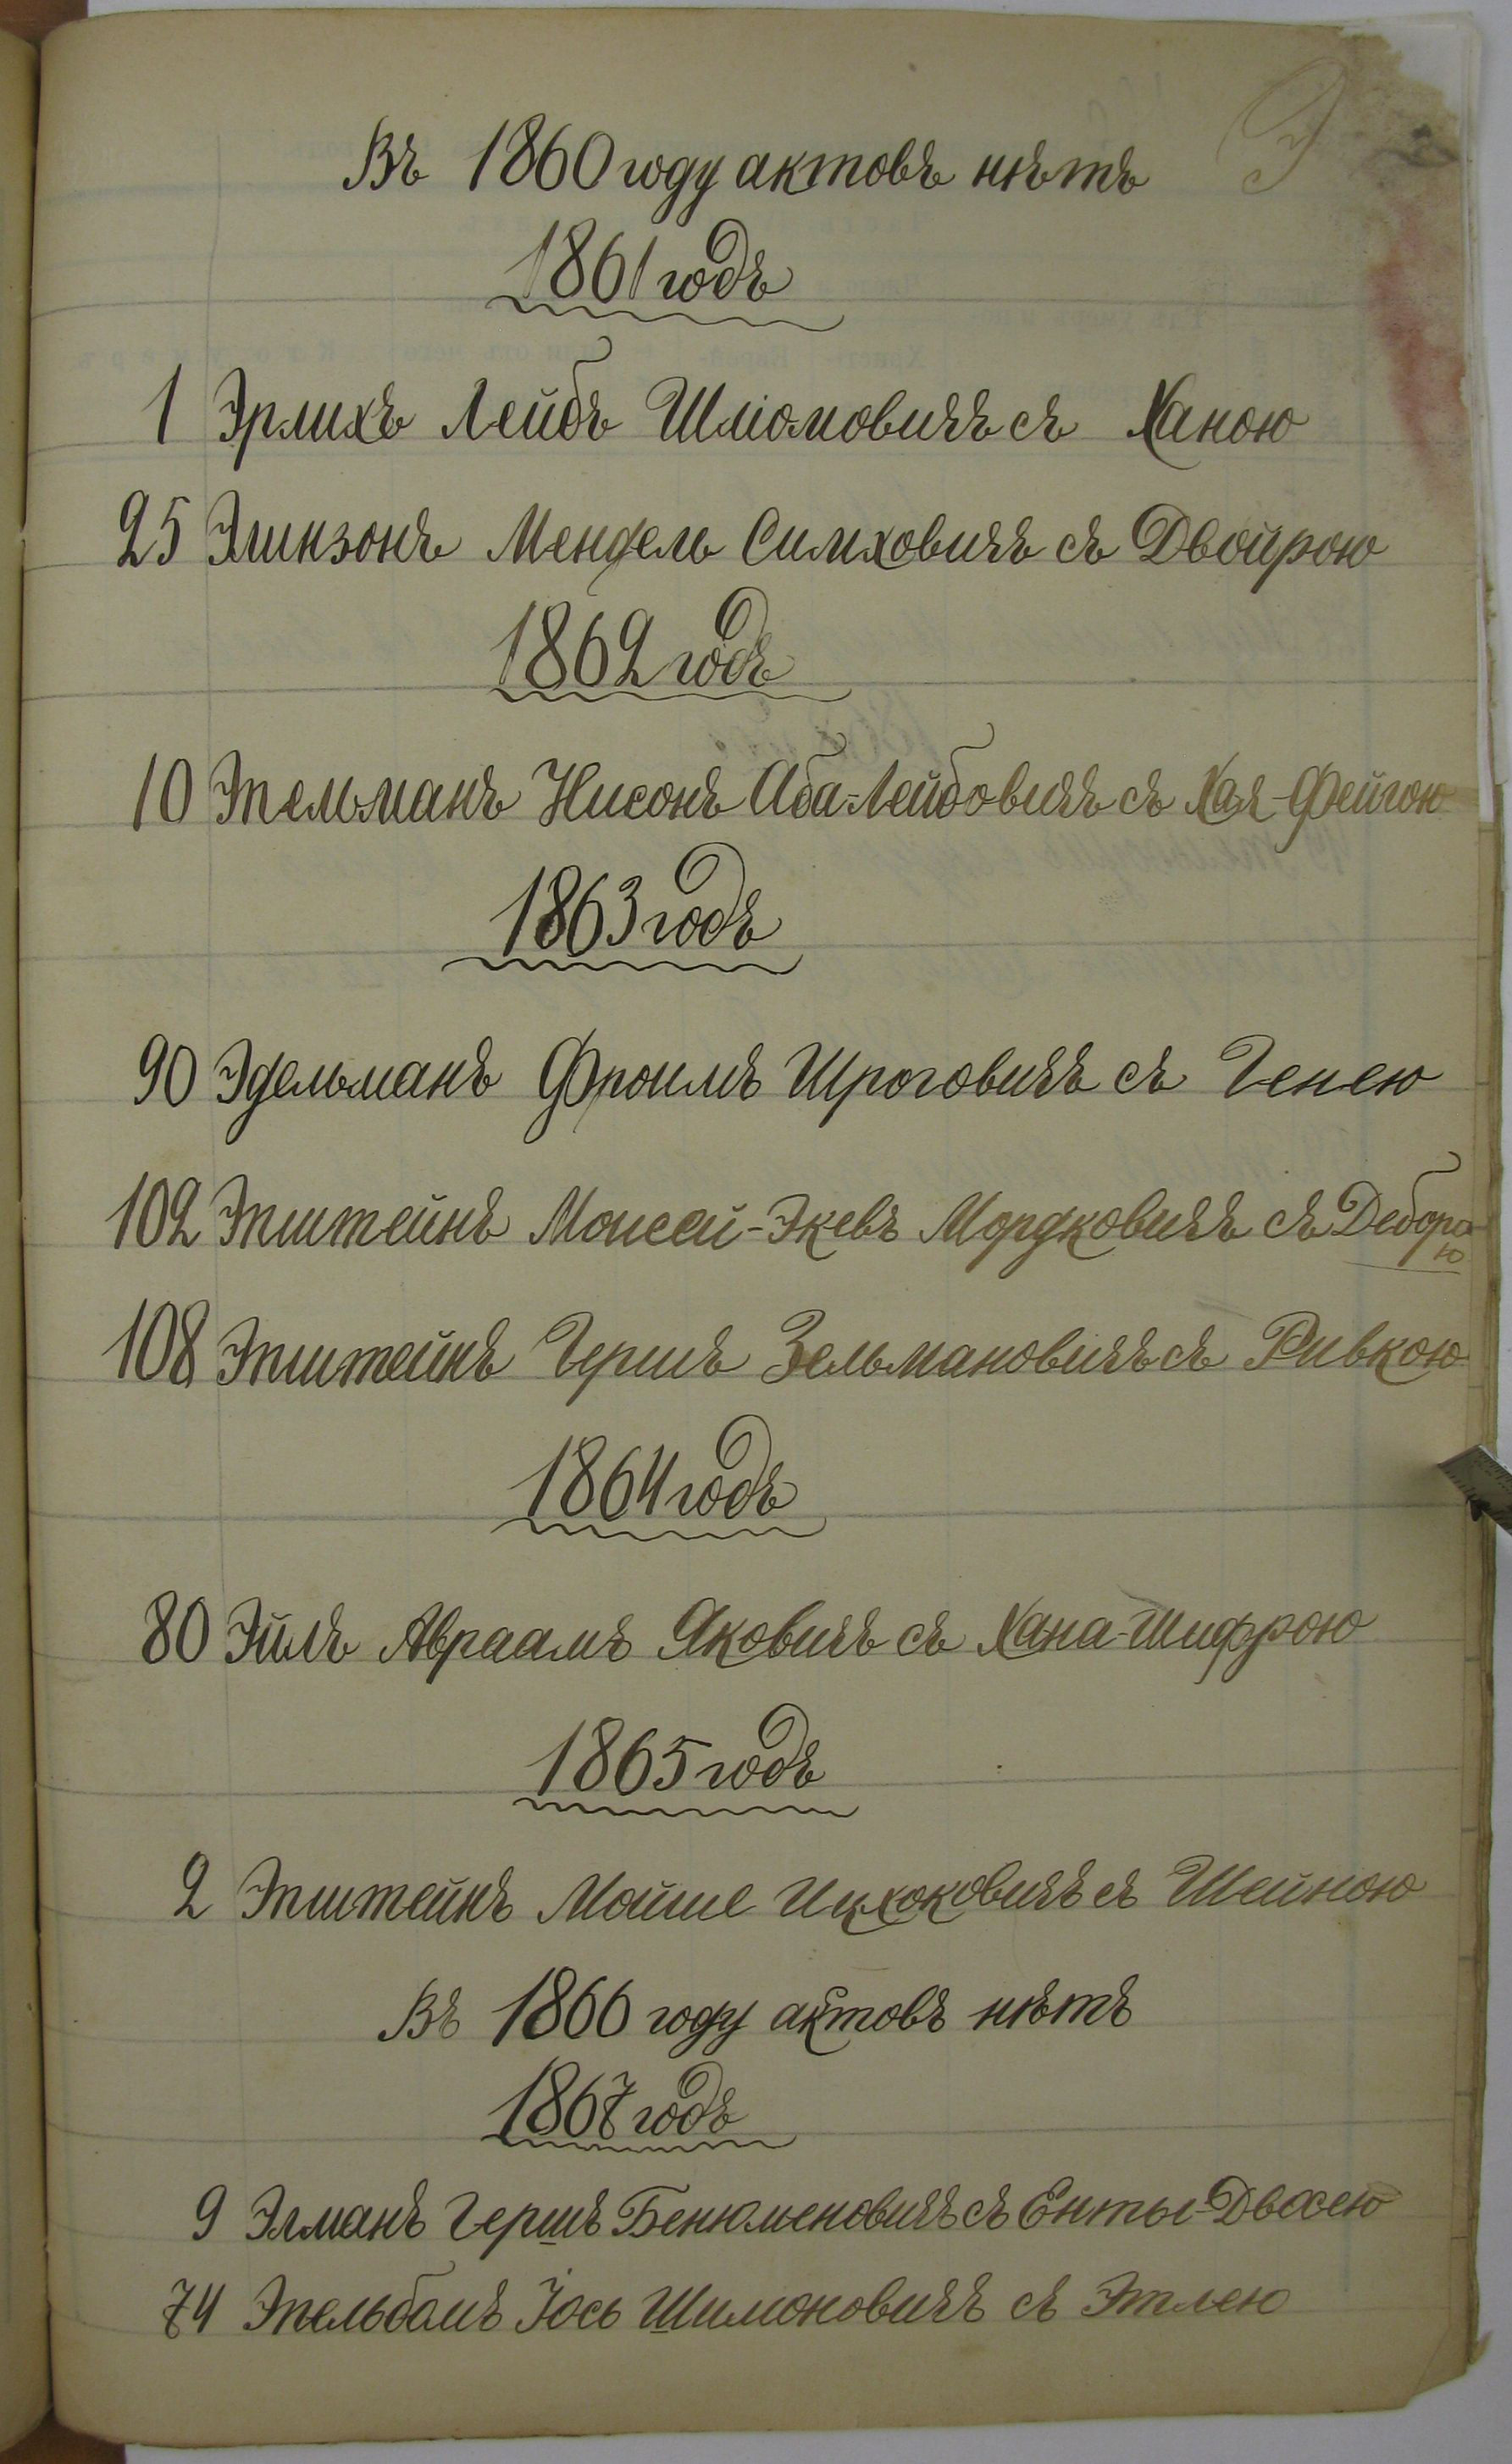 Э
Въ 1860 году актовъ нѣтъ
1861 годъ
1 Эрлихъ Лейбъ Шліомовичъ съ Ханою
25 Элинзонъ Мендель Симховичъ съ Двойрою
1862 годъ
10 Этельманъ Нисонъ Аба-Лейбовичъ съ Хая-Фейгою
1863 годъ
90 Эдельманъ Фроимъ Шроговичъ съ Генею
102 Эпштейнъ Моисей-Экевъ Мордковичъ съ Дебора
ю
108 Эпштейнъ Гершъ Зельмановичъ съ Ривкою
1864 годъ
80 Эйлъ Авраамъ Яковичъ съ Хана-Шифрою
1865 годъ
2 Эпштейнъ Мойше Ицхоковичъ съ Шейною
Въ 1866 году актовъ нѣтъ
1867 годъ
9 Элманъ Гершъ Бенюменовичъ съ Енты-Двосею
74 Эпельбамъ Іось Шимоновичъ съ Этлею